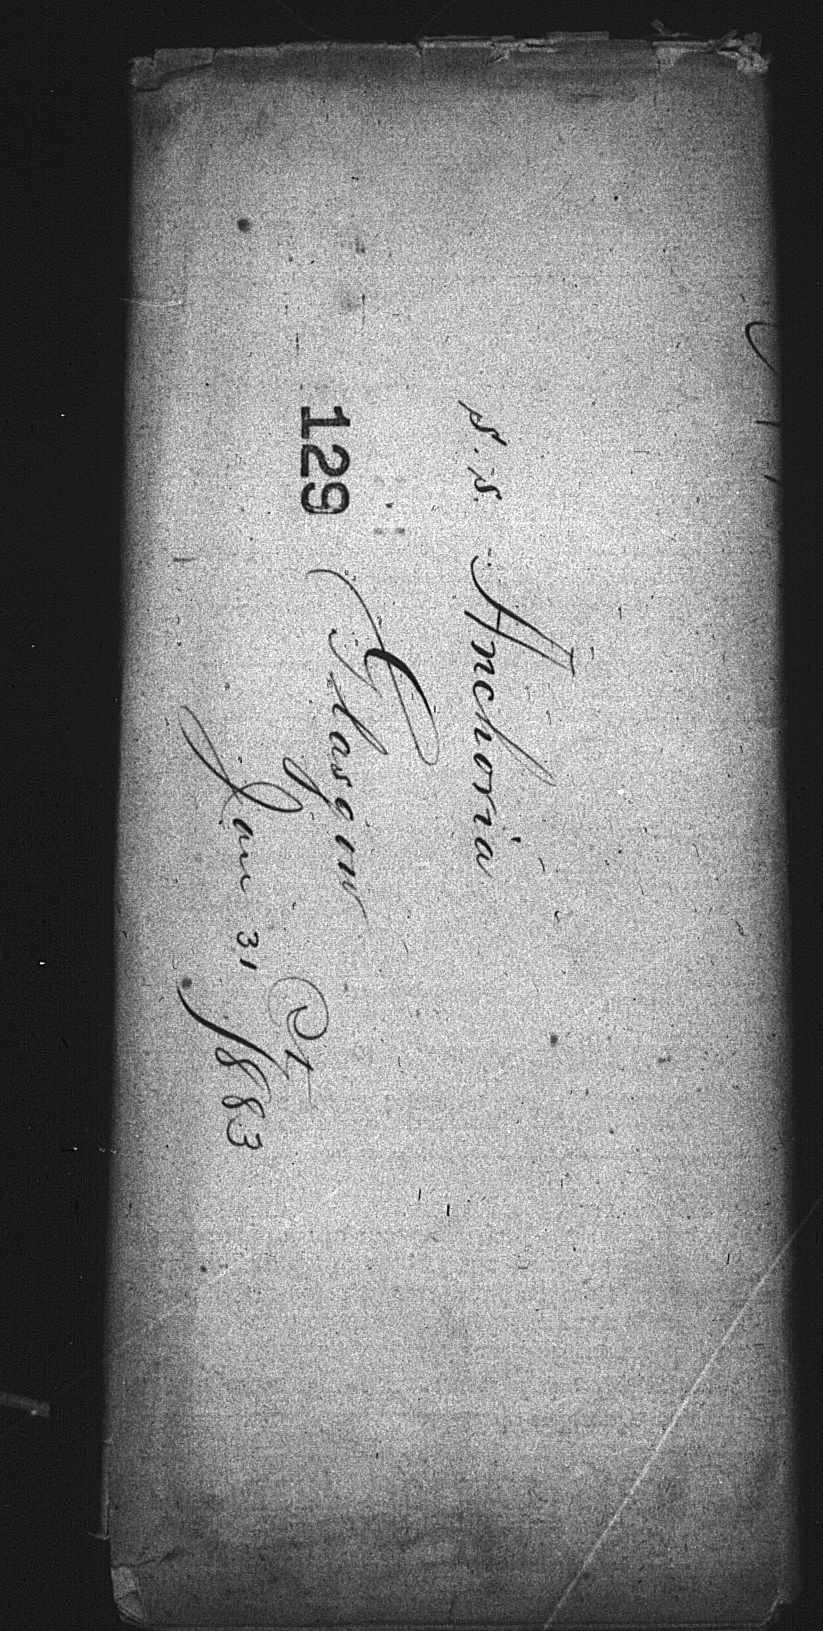 S.S. Anchoria
Glasgow
129
Jan 31 1883